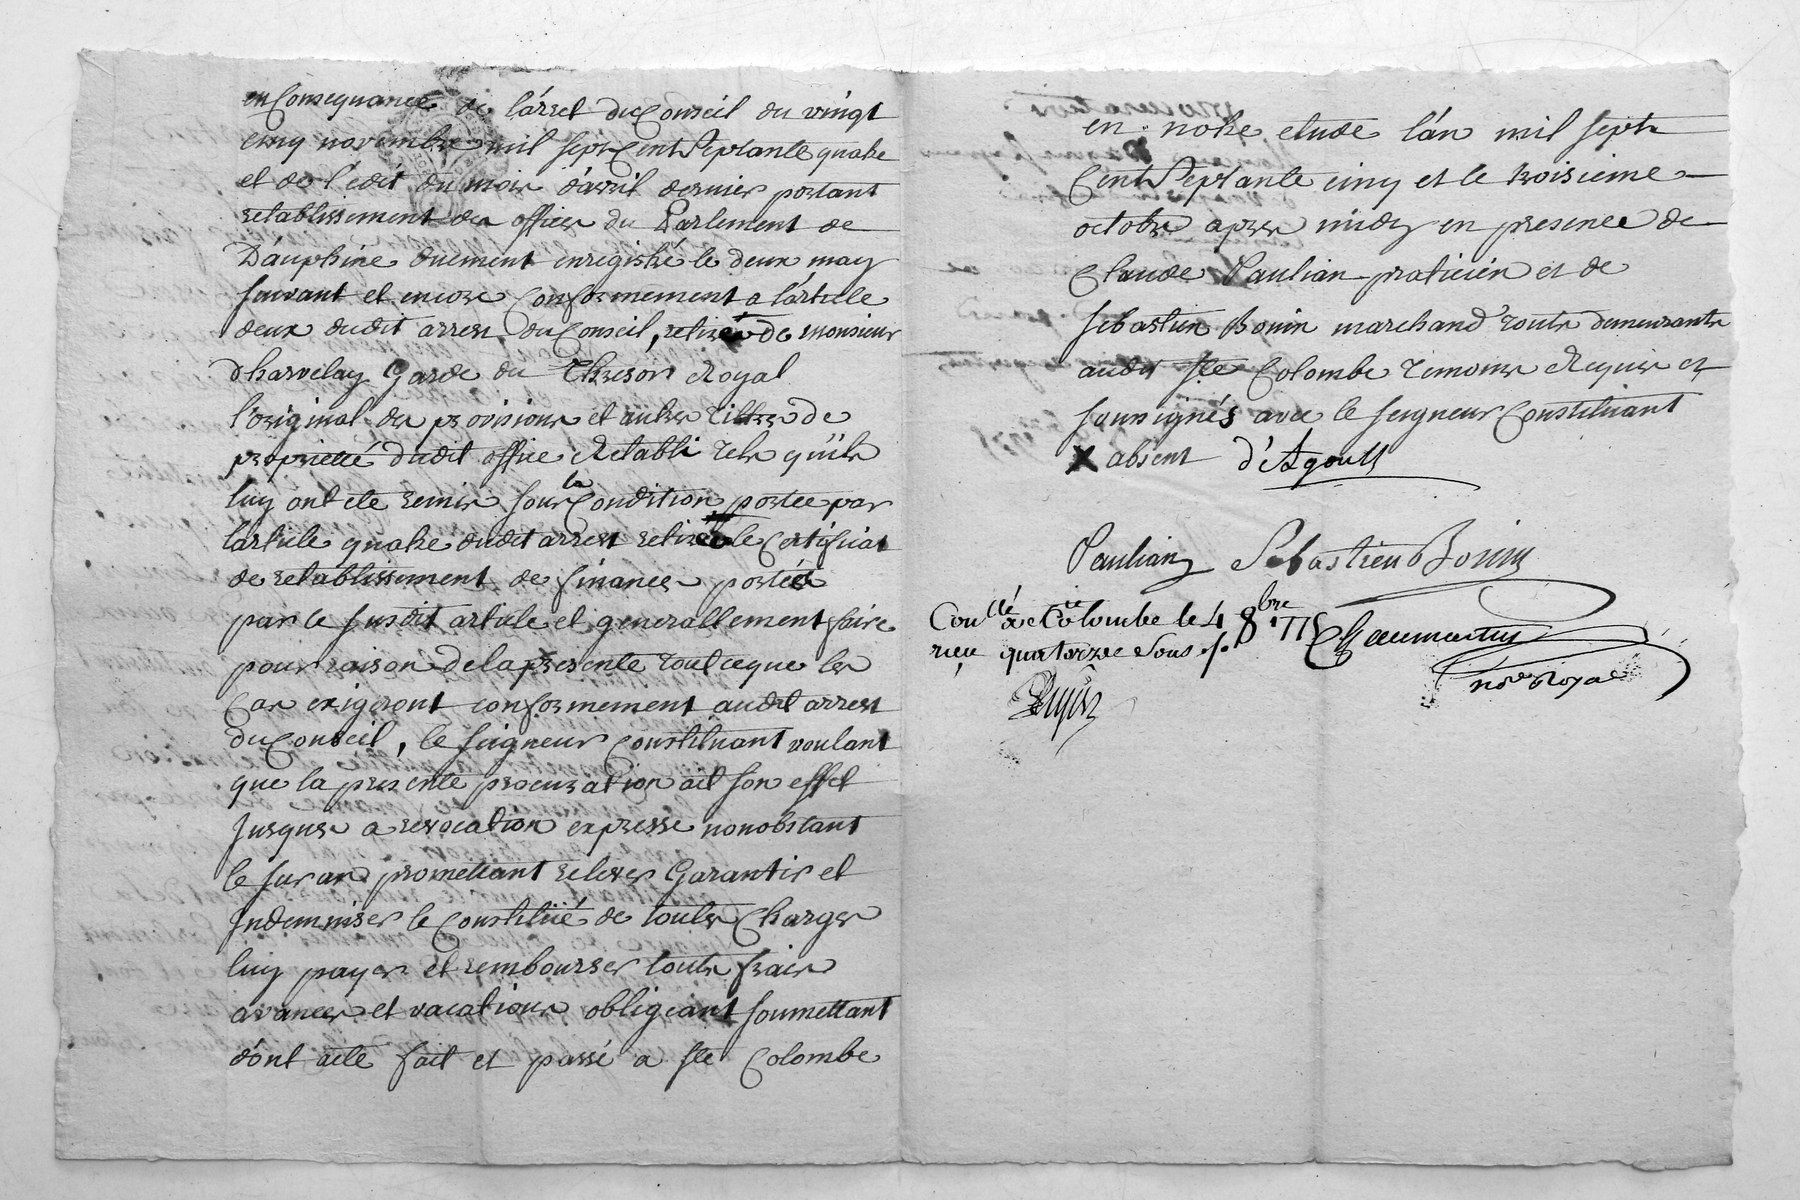 en Consequance de l'arret du Conseil du vingt
cinq novembre mil sept Cent Septante quatre
et de l'edit du mois d'avril dernier portant
retablissement des offices du Parlement de
Dauphiné duement enregistré le deux may
suivant et encore Conformement a l'article
deux dudit arrest du Conseil, retirer de monsieur
d'harvelay Garde du Thresor Royal
l'original des provisions et autres titres de
proprietté dudit office Retabli tels qu'ils
luy ont eté remis sous la Condition portée par
l'article quatre dudit arrest retirer le Certificat
de retablissement de finances portée
par le susdit article et generallement faire
pour raison de la presente tout ce que les
Cas exigeront conformement audit arrest
du Conseil, le seigneur Constituant voulant
que la presente procuration ait son effet
Jusques a revocation expresse nonobstant
le suran promettant relever Garantir et
Indemniser le Constitüé de toutes Charges
luy payer et rembourser touts frais
avances et vacations obligeant soumettant
dont acte fait et passé a ste Colombe
en notre etude l'an mil sept
Cent Septante cinq et le troisieme
octobre apres midy en presence de
Claude Paulian praticien et de
Sebastien Bonin marchand touts demeurants
audit ste Colombe temoins Requis et
soussignés avec le seigneur Constituant
X absent d'Agoult
Paulian Sebastien Bonin
Conllé a ste Colombe le 4 8bre 1775
reçu quatorze sous
Chaumartin
nore Royal